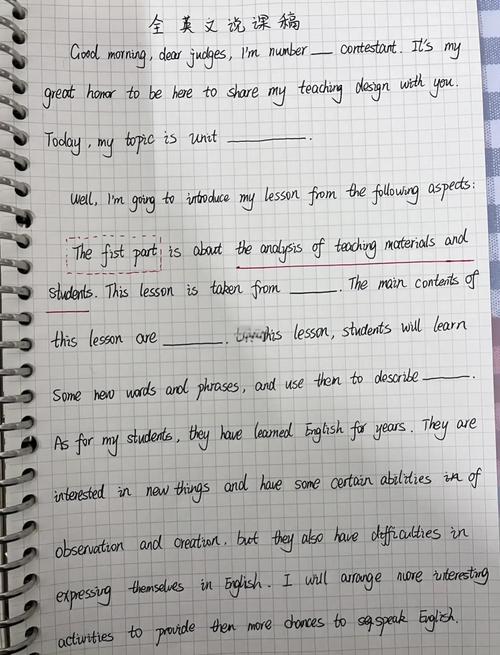 全英文说课稿
Good morning, dear judges, I'm number ___ contestant. It's my
great honor to be here to share my teaching design with you.
Today, my topic is unit ________.
Well, I'm going to introduce my lesson from the following aspects:
The fist part is about the analysis of teaching materials and
students. This lesson is taken from _____. The main contents of
this lesson are ______. this lesson, students will learn
Some new words and phrases, and use them to describe _____.
As for my students, they have learned English for years. They are
interested in new things and have some certain abilities of
observation and creation, but they also have difficulties in
expressing themselves in English. I will arrange more interesting
activities to provide them more chances to speak English.